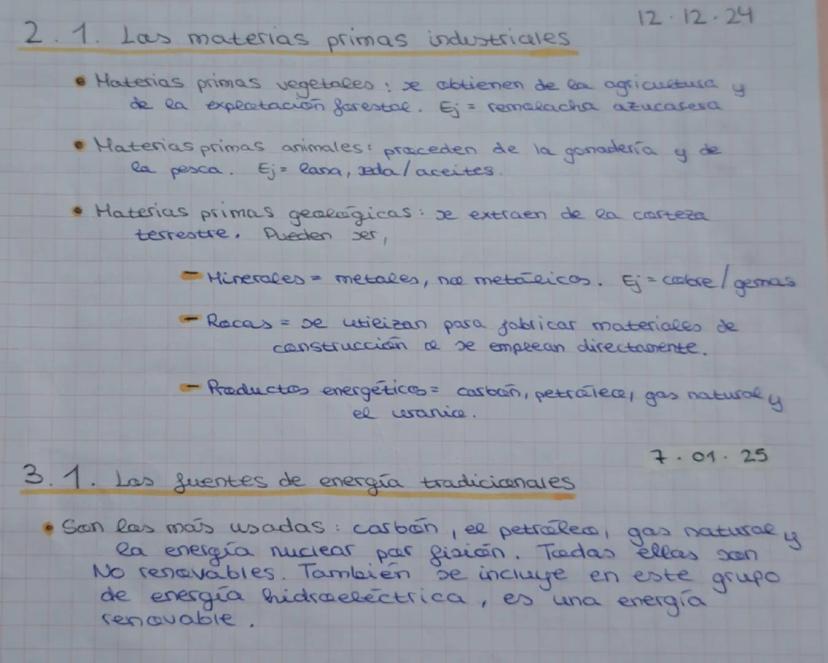 12.12.24
2.1. Las materias primas industriales
• Materias primas vegetales: se obtienen de la agricultura y
de la explotación forestal. Ej = remolacha azucarera
• Materias primas animales: proceden de la ganadería y de
la pesca. Ej = lana, seda / aceites.
• Materias primas geológicas: se extraen de la corteza
terrestre. Pueden ser,
- Minerales = metales, no metálicos. Ej = cobre / gemas
- Rocas = se utilizan para fabricar materiales de
construcción o se emplean directamente.
- Productos energéticos = carbón, petróleo, gas natural y
el uranio.
7.01.25
3.1. Las fuentes de energía tradicionales
• Son las más usadas: carbón, el petróleo, gas natural y
la energía nuclear por fisión. Todas ellas son
No renovables. También se incluye en este grupo
de energía hidroeléctrica, es una energía
renovable.